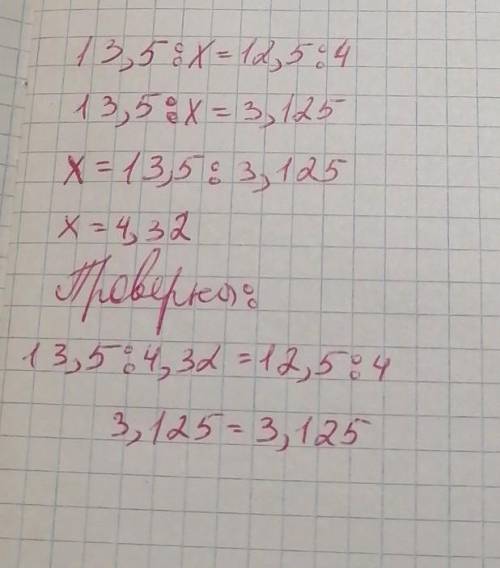 13,5:x=12,5:4
13,5:x=3,125
x=13,5:3,125
x=4,32
Проверка:
13,5:4,32=12,5:4
3,125=3,125